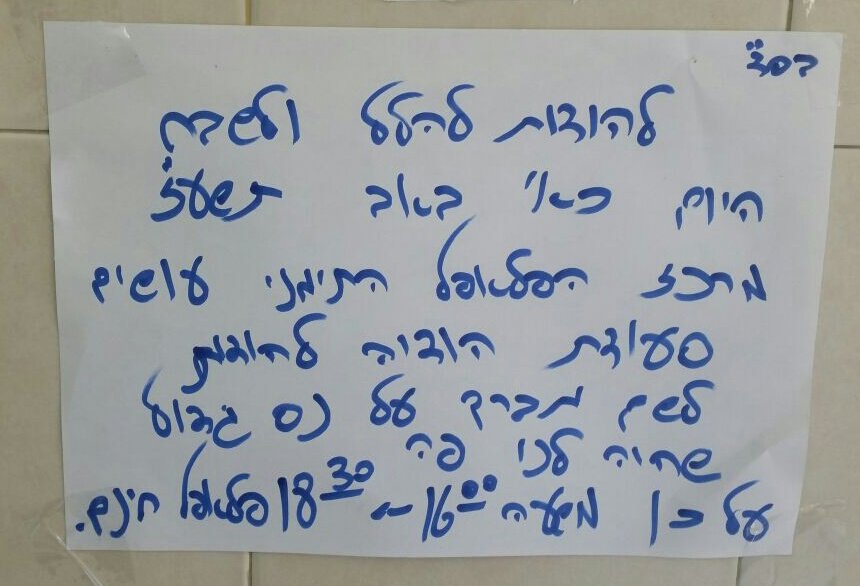 בסד"
להודות להלל ולשבח
היום, כא' באב תשע"ז
מרכז הפלאפל התימני עושים
סעודת הודיה להודות
לשם יתברך על נס גדול
שהיה לנו פה
על כן משעה 16:00 - 18:30 פלאפל חינם.